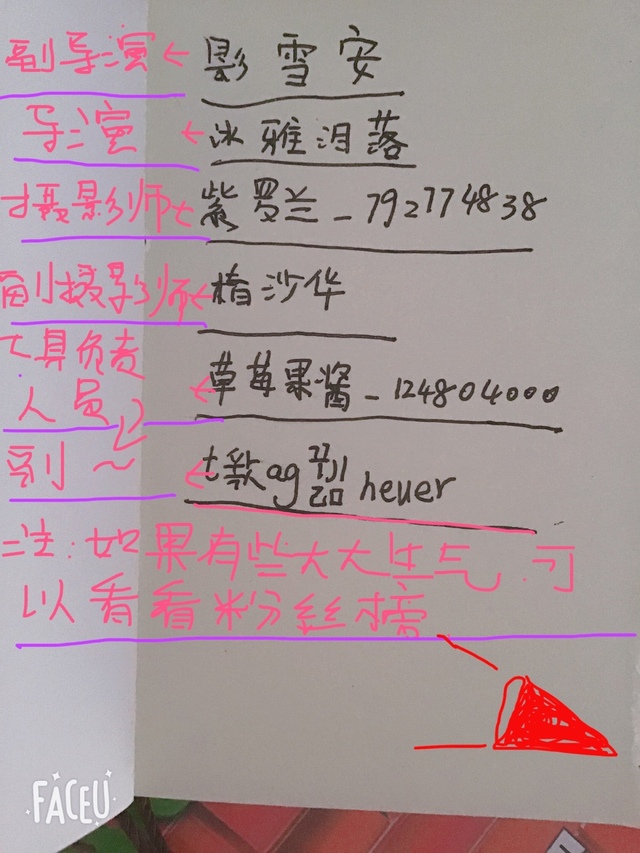 副导演← 影雪安
导演 ← 冰雅泪落
摄影师← 紫罗兰_792774838
副摄影师← 楕沙华
亽具负责 ← 草莓果酱_124804000
人员
副~ ← t ag heuer
注:如果有些大大生气,可
以看看粉丝榜
FACEU